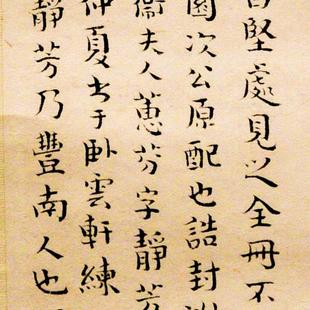 堅處見之全冊不
園次公原配也誥封
衞夫人蕙芬字靜芳
仲夏書于卧雲軒練
靜芳乃豐南人也